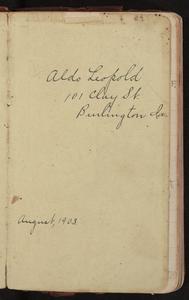 Aldo Leopold
101 Clay St.
Burlington Ia.
August, 1903.